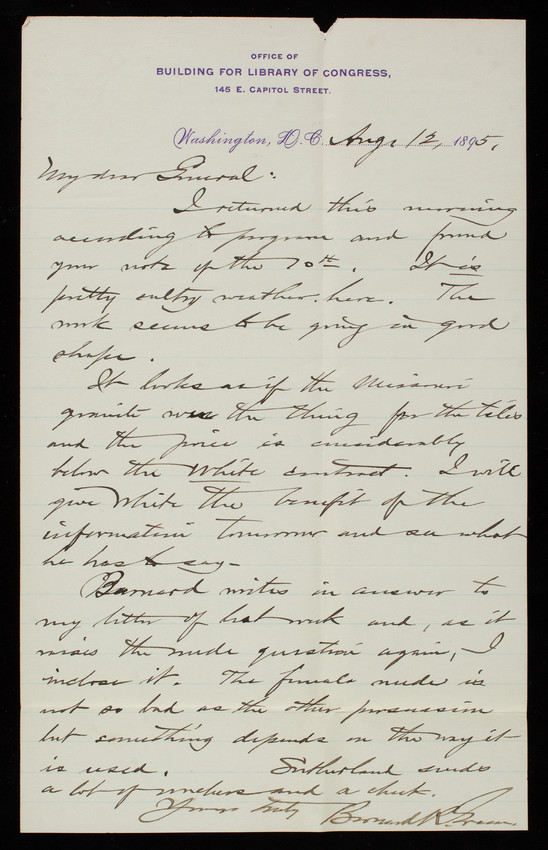 OFFICE OF
BUILDING FOR LIBRARY OF CONGRESS,
145 E. CAPITOL STREET.
Washington, D.C. Aug. 12, 1895.
My dear General:
I returned this morning
according to program and found
your note of the 10th. It is
pretty sultry weather here. The
work seems to be going in good
shape.
It looks as if the Missouri
granite were the thing for the tiles
and the price is considerably
below the White contract. I will
give White the benefit of the
information tomorrow and see what
he has to say—
Barnard writes in answer to
my letter of last week and, as it
raises the nude question again, I
inclose it. The female nude is
not so bad as the other persuasion
but something depends on the way it
is used. Sutherland sends
a lot of vouchers and a check.
Yours truly Bernard R. Green.